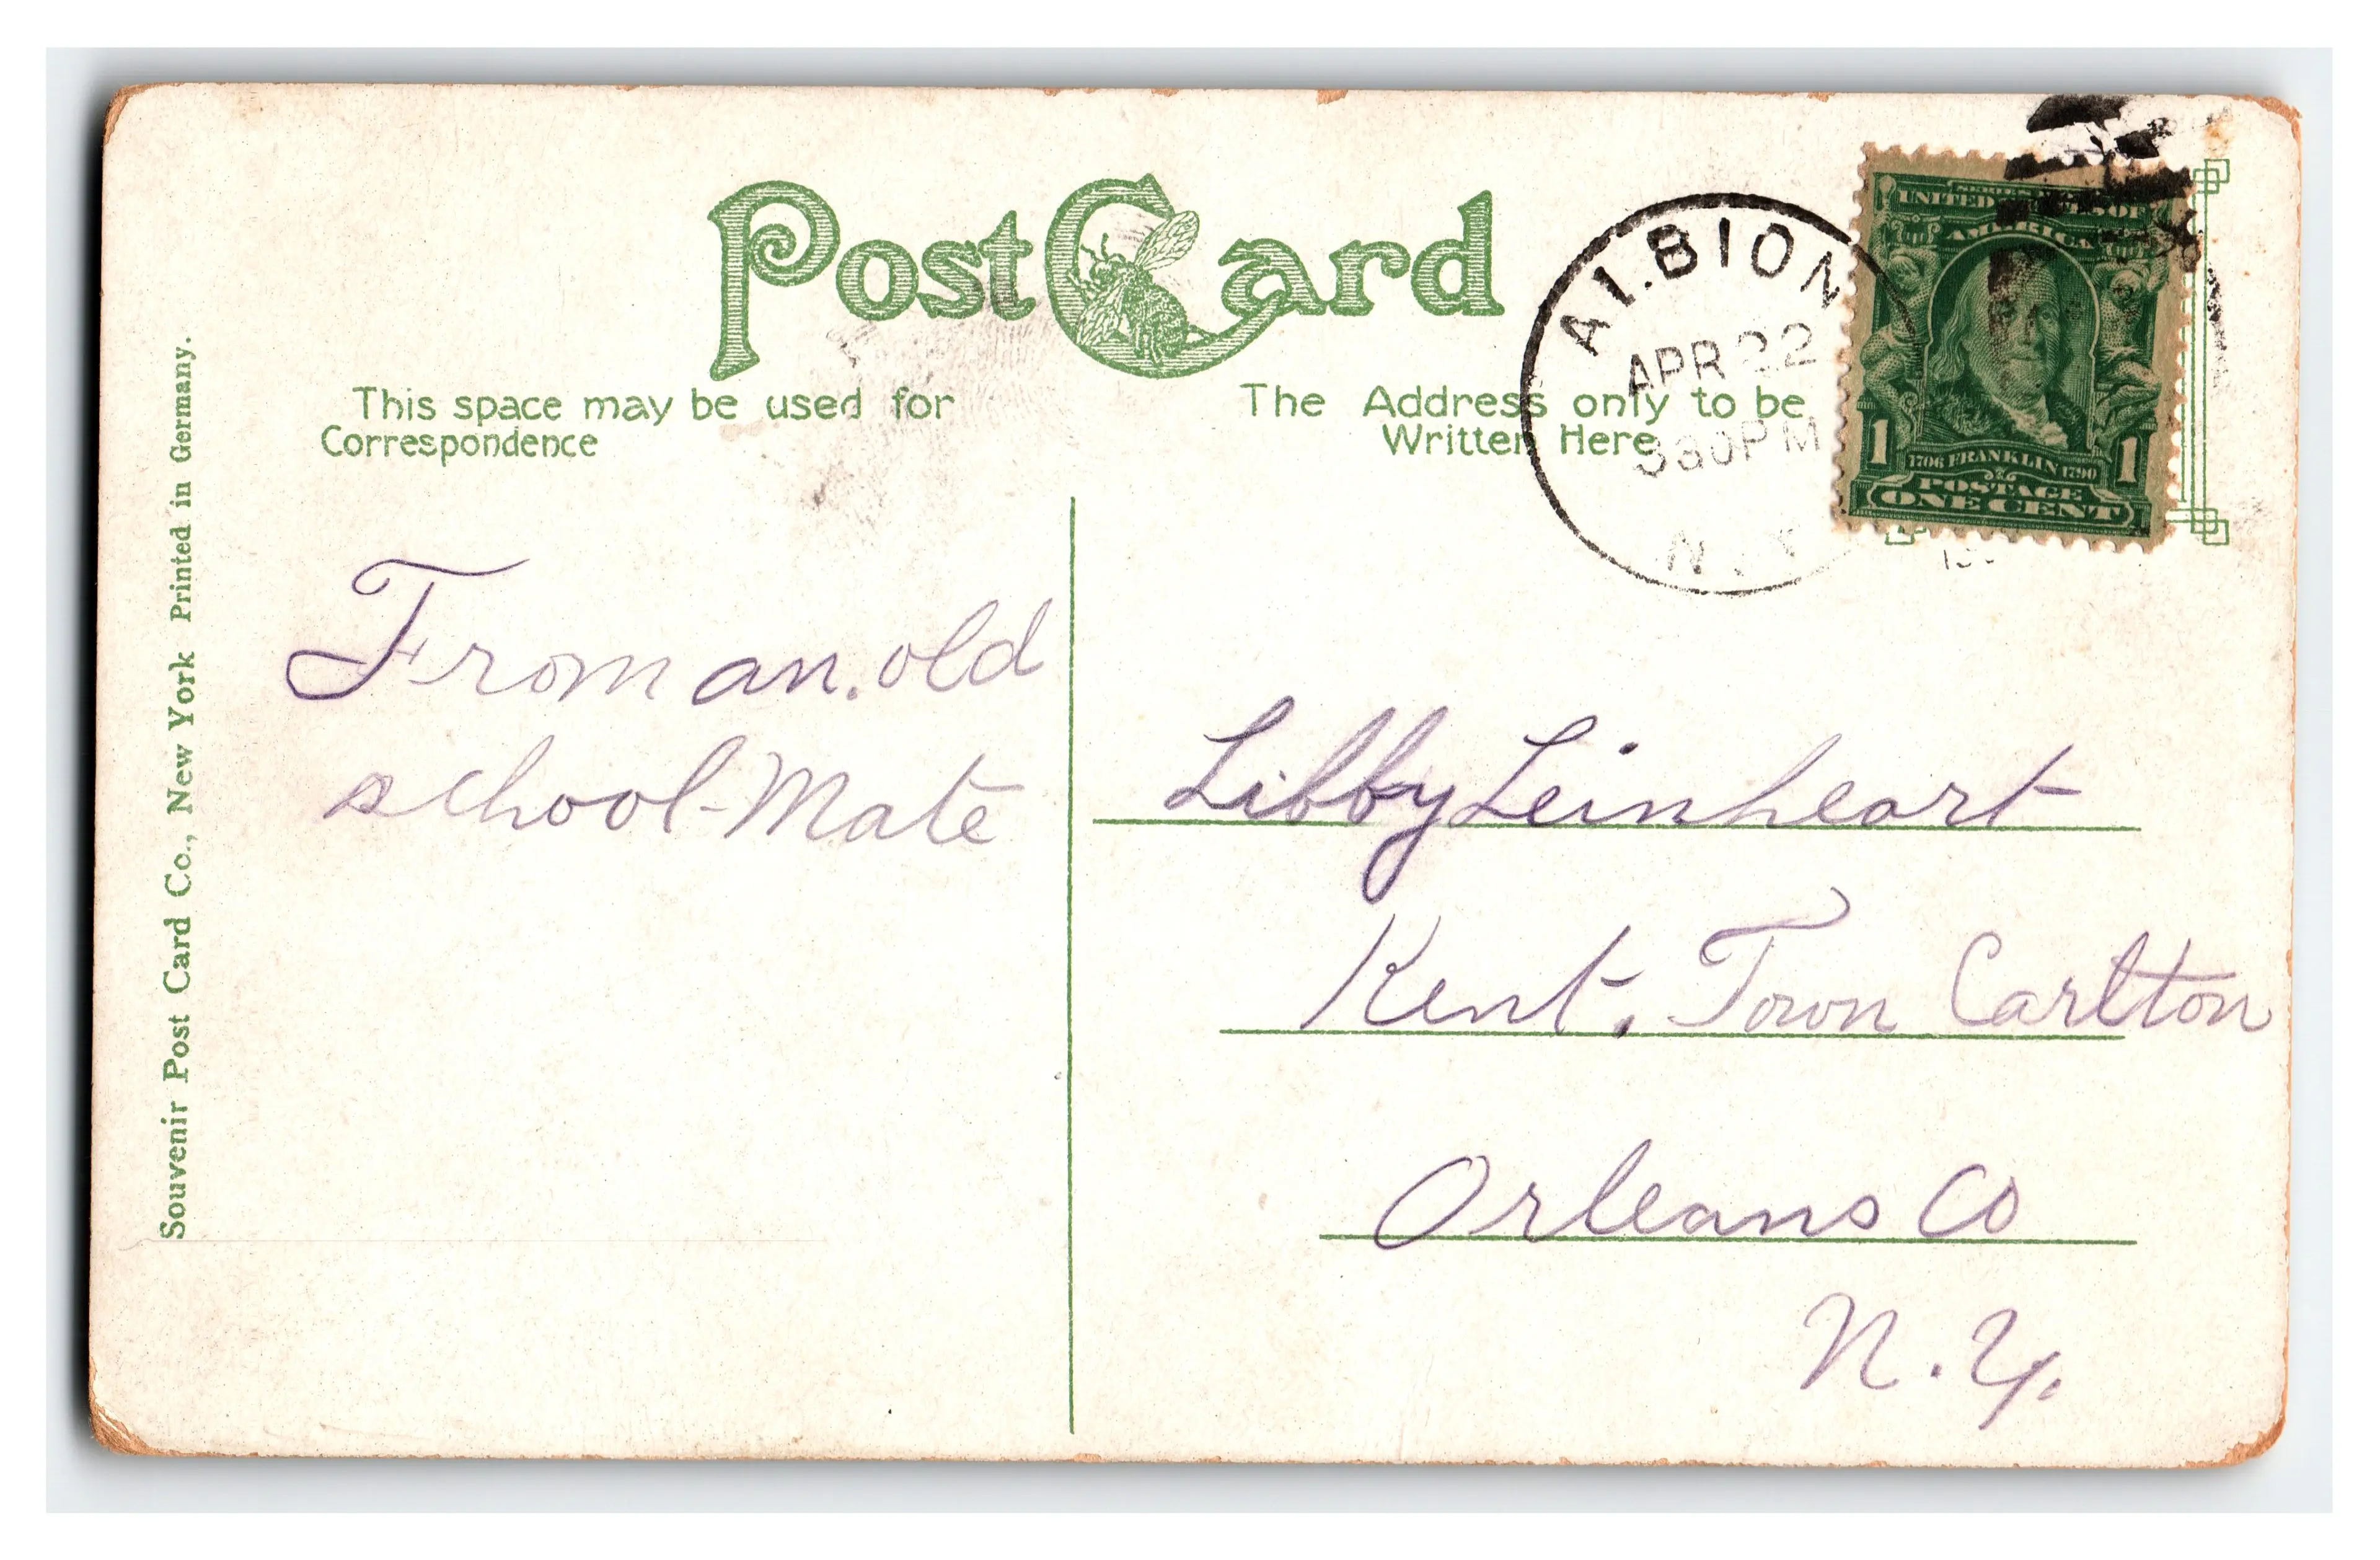 Post Card
This space may be used for
Correspondence
The Address only to be
Written Here
ALBION
APR 22
330PM
N.Y.
UNITED STATES OF
AMERICA
1
1
1706 FRANKLIN 1790
POSTAGE
ONE CENT
Souvenir Post Card Co., New York Printed in Germany.
From an. old
school-Mate
Libby Leinheart
Kent. Town Carlton
Orleans Co
N.Y.